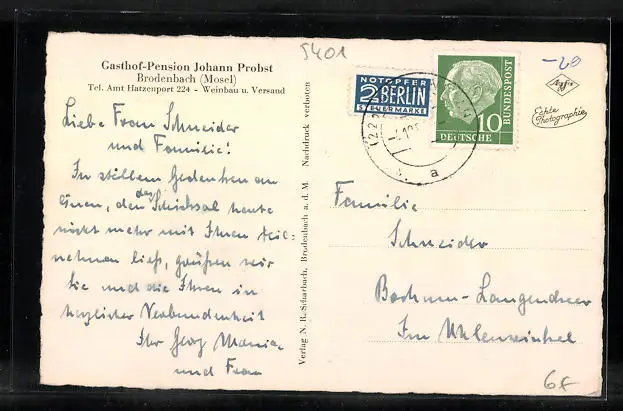 Gasthof-Pension Johann Probst
Brodenbach (Mosel)
Tel. Amt Hatzenport 224 - Weinbau u. Versand
Liebe Frau Schneider
und Familie!
In stillem Gedenken an
Einen, den das Schicksal heute
nicht mehr mit Ihnen teil-
nehmen ließ, grüßen wir
Sie und die Ihren in
herzlicher Verbundenheit
Ihr Georg
und Frau
Verlag N. R. Scharbach, Brodenbach a. d. M. Nachdruck verboten
5401
NOTOPFER
2 BERLIN
STEUERMARKE
10
DEUTSCHE
BUNDESPOST
a
-20
Agfa
Echte
Photographie
Familie
Schneider
Bochum-Langendreer
Im Uhlenwinkel